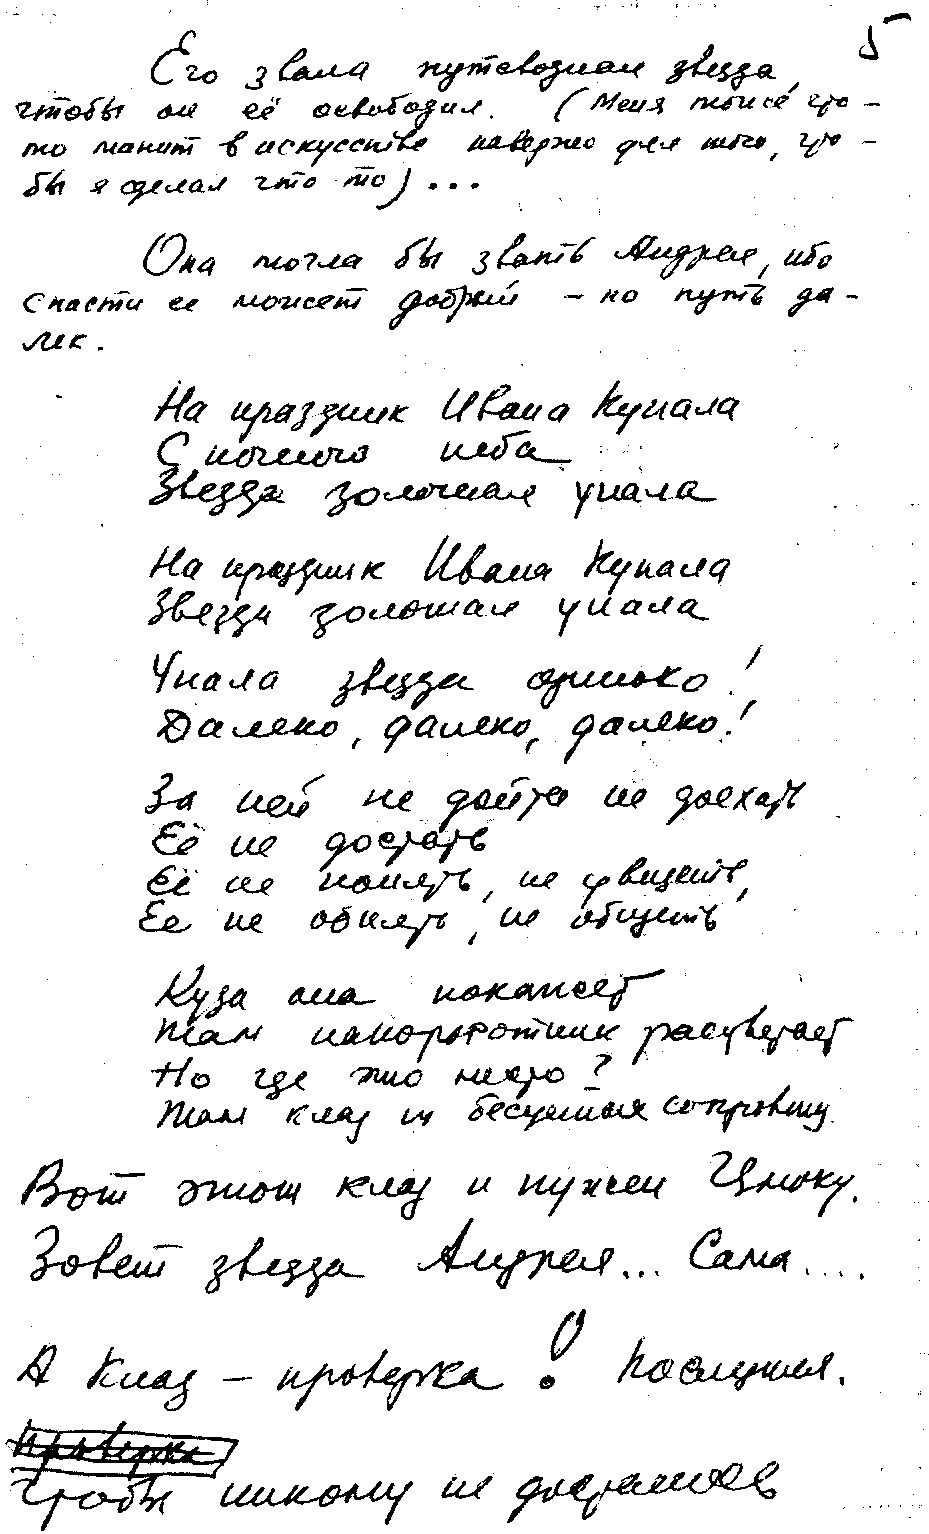 5
Его звала путеводная звезда,
чтобы он её освободил. (Меня тоже что-
то манит в искусстве наверно для того, что-
бы я сделал что то)...
Она могла бы звать Андрея, ибо
спасти ее может добрый - но путь да-
лек.
На праздник Ивана Купала
С ночного неба
Звезда золотая упала
На праздник Ивана Купала
Звезда золотая упала
Упала звезда одиноко!
Далеко, далеко, далеко!
За ней не дойти не доехать
Её не достать
Её не понять, не увидеть,
Ее не обнять, не обидеть
Куда она покажет
Там папоротник расцветает
Но где это место?
Там клад из бесценных сокровищ
Вот этот клад и нужен Цмоку.
Зовет звезда Андрея... Сама....
А клад - проверка! Последняя.
проверка
Чтобы никому не достался